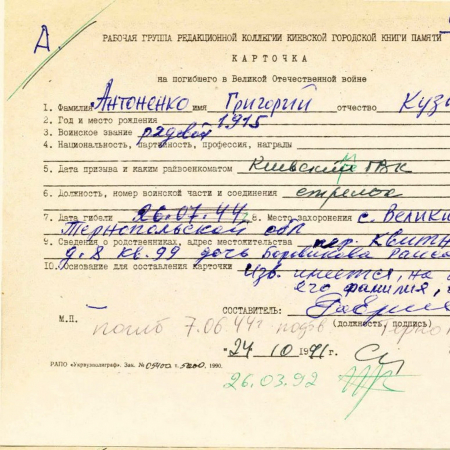 Д
РАБОЧАЯ ГРУППА РЕДАКЦИОННОЙ КОЛЛЕГИИ КИЕВСКОЙ ГОРОДСКОЙ КНИГИ ПАМЯТИ
КАРТОЧКА
на погибшего в Великой Отечественной войне
1. Фамилия Антоненко имя Григорий отчество Кузь
2. Год и место рождения 1915
3. Воинское звание рядовой
4. Национальность, партийность, профессия, награды
5. Дата призыва и каким райвоенкоматом Киевский ГВК
6. Должность, номер воинской части и соединения стрелок
7. Дата гибели 26.07.44 8. Место захоронения с. Велики
Тернопольской обл
9. Сведения о родственниках, адрес местожительства пер. Квитн
д. 8 кв. 99 дочь Раиса
10. Основание для составления карточки Изв. имеется, на
его фамилия,
СОСТАВИТЕЛЬ:
(должность, подпись)
М.П. погиб 7.06.44г
"24" 10 1991 г.
РАПО «Укрвузполиграф». Зак. № т. 1990.
26.03.92